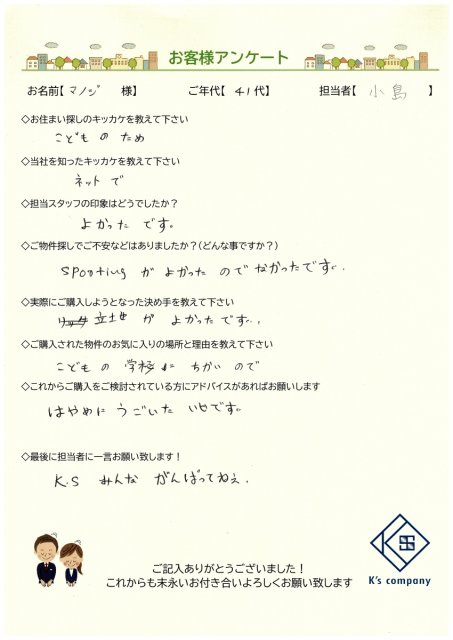 お客様アンケート
お名前【 マノジ 様】 ご年代【 41代】 担当者【 小島 】
◇お住まい探しのキッカケを教えて下さい
こども の ため
◇当社を知ったキッカケを教えて下さい
ネット で
◇担当スタッフの印象はどうでしたか?
よかった です。
◇ご物件探しでご不安などはありましたか?(どんな事ですか?)
がよかった のでなかったです。
◇実際にご購入しようとなった決め手を教えて下さい
が よかった です。
◇ご購入された物件のお気に入りの場所と理由を教えて下さい
こども の 学校に ちかい ので
◇これからご購入をご検討されている方にアドバイスがあればお願いします
はやめに うごいた いいです。
◇最後に担当者に一言お願い致します!
K.S みんな がんばってねぇ.
ご記入ありがとうございました!
これからも末永いお付き合いよろしくお願い致します
K's company